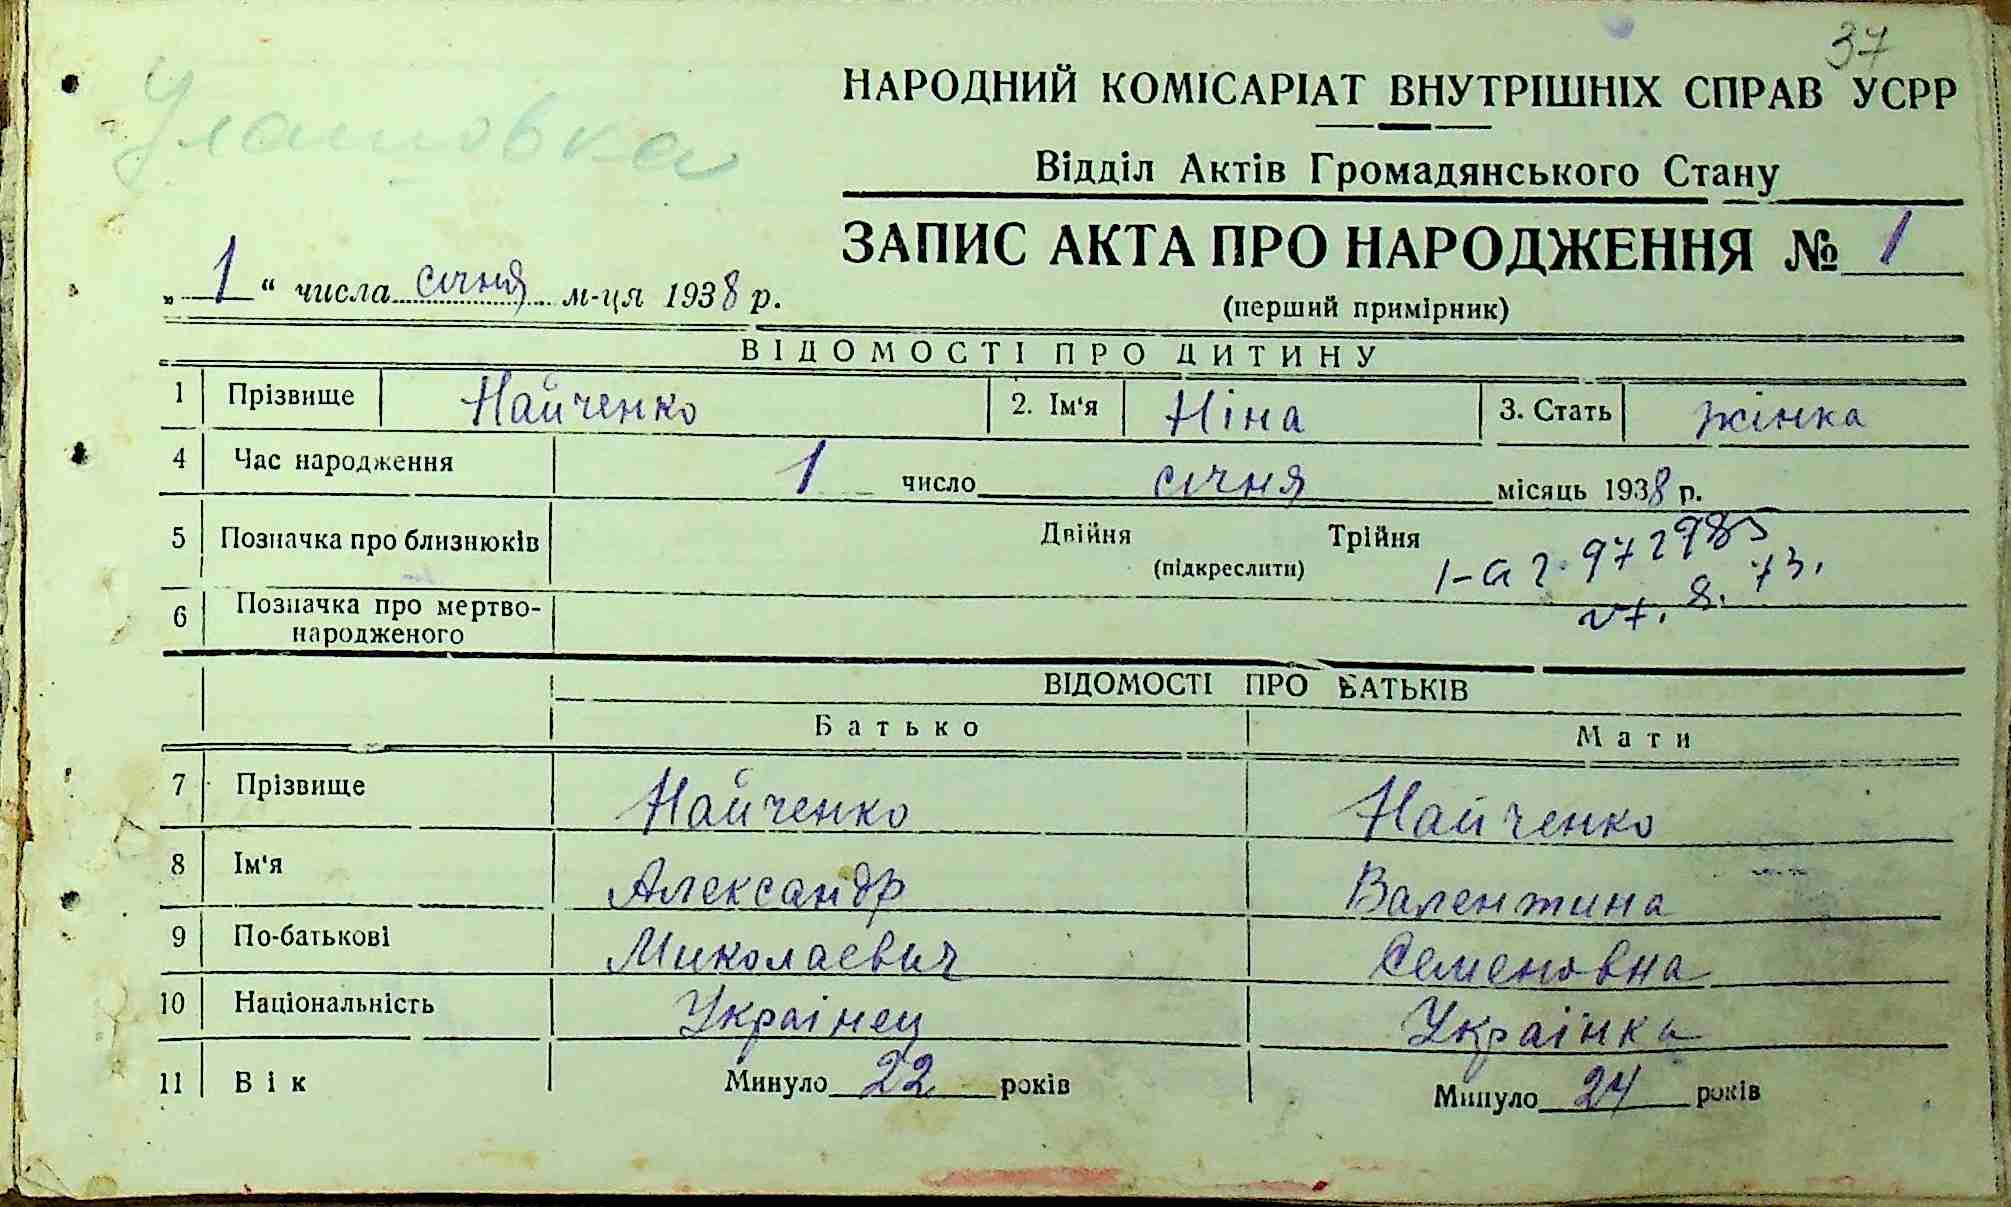 37
Улашовка
НАРОДНИЙ КОМІСАРІАТ ВНУТРІШНІХ СПРАВ УСРР
Відділ Актів Громадянського Стану
ЗАПИС АКТА ПРО НАРОДЖЕННЯ № 1
(перший примірник)
„1“ числа січня м-ця 1938 р.
ВІДОМОСТІ ПРО ДИТИНУ
1 Прізвище Найченко 2. Ім‘я Ніна 3. Стать жінка
4 Час народження 1 число січня місяць 1938 р.
5 Позначка про близнюків Двійня Трійня
(підкреслити)
6 Позначка про мертво-
народженого
ВІДОМОСТІ ПРО БАТЬКІВ
Батько Мати
7 Прізвище Найченко Найченко
8 Ім‘я Александр Валентина
9 По-батькові Миколаевич Семеновна
10 Національність Українец Українка
11 Вік Минуло 22 років Минуло 24 років